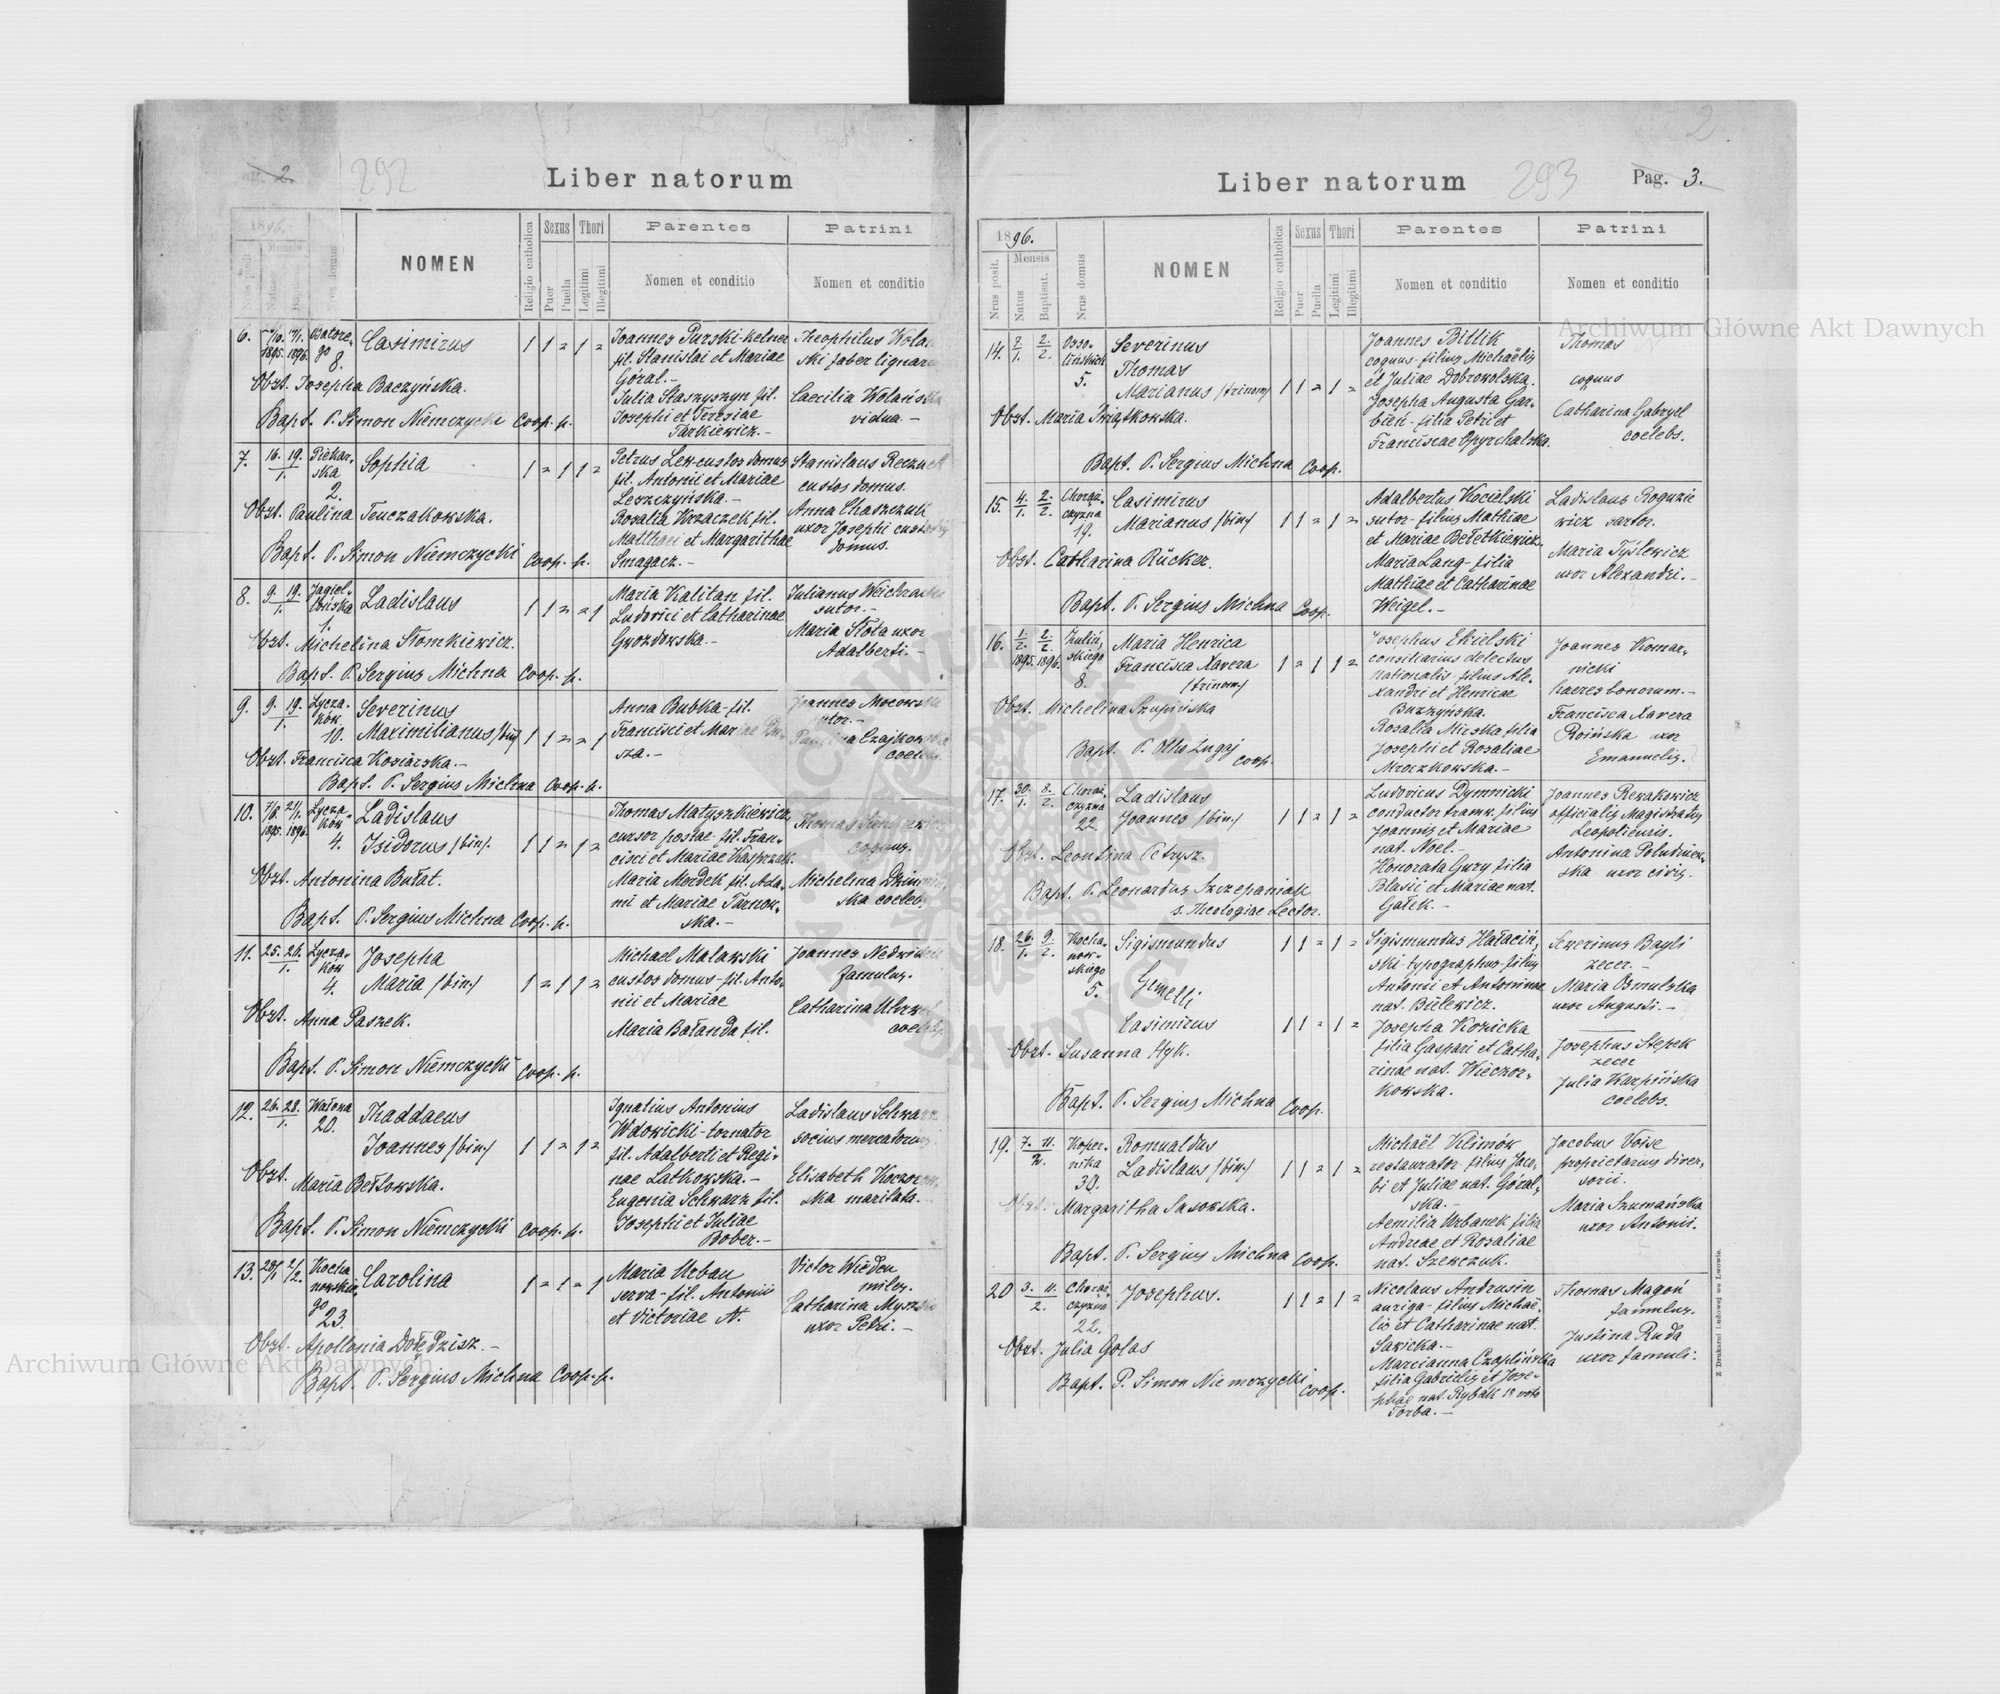 2
292
Liber natorum
1896.
Mensis
NOMEN
Religio catholica
Sexus
Puer
Puella
Thori
Legitimi
Illegitimi
Parentes
Nomen et conditio
Patrini
Nomen et conditio
6.
1895. 1896.
Batore-
go
8.
Casimirus
1 1 = 1 =
Joannes Purski kelner
fil. Stanislai et Mariae
Góral.-
Julia Staszyszyn fil.
Josephi et Teresiae
Tarkiewicz.-
Theophilus
ski faber
Caecilia Wolańska
vidua.-
Obst. Josepha Baczyńska.
Bapt. P. Simon Niemczycki Coop. p.
7.
16. 19.
1.
Piekar-
ska
2.
Sophia
1 = 1 1 =
Petrus Lew custos domus
fil. Antonii et Mariae
Leszczyńska.-
Rosalia Krzaczek fil.
Matthaei et Margarithae
Smagacz.-
Stanislaus
custos domus.
Anna Chaszczuk
uxor Josephi custodis
domus.
Obst. Paulina Tenczakowska.
Bapt. P. Simon Niemczycki Coop. p.
8.
9. 19.
1.
Jagiel-
lońska
1.
Ladislaus
1 1 = = 1
Maria Kalitan fil.
Ludovici et Catharinae
Gwozdowska.-
Julianus
sutor.-
Maria Słota uxor
Adalberti.-
Obst. Michelina Słomkiewicz.
Bapt. P. Sergius Michna Coop. p.
9.
9. 19.
1.
Lycza-
ków
10.
Severinus
Maximilianus /bin/
1 1 = = 1
Anna Bubka-fil.
Francisci et Mariae
sza.-
Joannes
coelebs.
Obst. Francisca Kosiarska.-
Bapt. P. Sergius Michna Coop. p.
10.
1895. 1896.
Lycza-
ków
4.
Ladislaus
Isidorus /bin/.
1 1 = 1 =
Thomas Matyszkiewicz
cursor postae fil. Fran-
cisci et Mariae Kasprzak.
Maria Merdek fil. Ada-
mi et Mariae Tarnow-
ska.-
Thomas
coquus.
Michelina
ska coelebs
Obst. Antonina Bułat.
Bapt. P. Sergius Michna Coop. p.
11.
25. 26.
1.
Lycza-
ków
4.
Josepha
Maria /bin./
1 = 1 1 =
Michael Malawski
custos domus-fil. Anto-
nii et Mariae
Maria Bałanda fil.
Joannes
famulus.
Catharina
coelebs.
Obst. Anna Paszek.
Bapt. P. Simon Niemczycki Coop. p.
12.
26. 28.
1.
Wałowa
20.
Thaddaeus
Joannes /bin./
1 1 = 1 =
Ignatius Antonius
Wdowicki-tornator
fil. Adalberti et Regi-
nae Latkowska.-
Eugenia Schwarz fil.
Josephi et Juliae
Bober.-
Ladislaus Schwarz
socius mercatorius.
Elisabeth
ska maritata.
Obst. Maria Bełtowska.
Bapt. P. Simon Niemczycki Coop. p.
13.
28/1 2/2.
Kocha
nowskie-
go
23.
Carolina
1 = 1 = 1
Maria Urban
serva-fil. Antonii
et Victoriae N.
Victor Wieden
miles.
Catharina
uxor Petri.-
Obst. Apollonia Dołędzisz.-
Bapt. P. Sergius Michna Coop. p.
2
Liber natorum
293
Pag. 3.
1896.
Nrus posit.
Mensis
Natus
Baptisat.
Nrus domus
NOMEN
Religio catholica
Sexus
Puer
Puella
Thori
Legitimi
Illegitimi
Parentes
Nomen et conditio
Patrini
Nomen et conditio
14.
2.
1. 2.
Osso-
lińskich
5.
Severinus
Thomas
Marianus /trinom/
1 1 = 1 =
Joannes Bittik
coquus-filius Michaëlis
et Juliae Dobrowolska.
Josepha Augusta Gar-
bień-filia Petri et
Franciscae Opyrchalska.
Thomas
coquus
Catharina Gabryel
coelebs.
Obst. Maria Kwiatkowska.
Bapt. P. Sergius Michna Coop.
15.
4. 2.
1. 2.
Chorąż-
czyzna
19.
Casimirus
Marianus /bin/
1 1 = 1 =
Adalbertus Kocielski
sutor-filius Mathiae
et Mariae Bełetkiewicz.
Maria Lang-filia
Mathiae et Catharinae
Weigel.-
Ladislaus Roguzie
wicz sartor.
Maria Tyślewicz
uxor Alexandri.-
Obst. Catharina Rücker.
Bapt. P. Sergius Michna Coop.
16.
1. 2.
2. 2.
1895. 1896.
Zuliń-
skiego
8.
Maria Henrica
Francisca Xavera
/trinom/
1 = 1 1 =
Josephus Ekielski
consiliarius delectus
nationalis-filius Ale-
xandri et Henricae
Buzzyńska.
Rosalia Mirska filia
Josephi et Rosaliae
Mroczkowska.-
Joannes Komar-
nicki
haeres bonorum.-
Francisca Xavera
Roińska uxor
Emanuelis.
Obst. Michelina Szupińska
Bapt. P. Otto Zugaj
Coop.
17.
30. 8.
1. 2.
Chorąż-
czyzna
22.
Ladislaus
Joannes /bin./
1 1 = 1 =
Ludovicus Dymnicki
conductor tramw. filius
Joannis et Mariae
nat. Noel.-
Honorata Gury filia
Blasii et Mariae nat.
Gałek.-
Joannes Rewakowicz
officialis Magistratus
Leopoliensis.
Antonina Poludniew-
ska uxor civis.
Obst. Leontina Petrysz.
Bapt. P. Leonardus Szczepaniak
s. Theologiae Lector.
18.
26. 9.
1. 2.
Kocha-
now-
skiego
5.
Sigismundus
1 1 = 1 =
Gemelli
Casimirus
1 1 = 1 =
Sigismundus Hałaciń-
ski-typographus-filius
Antonii et Antoninae
nat. Bulewicz.
Josepha Kozicka
filia Gaspari et Catha-
rinae nat. Wieczor-
kowska.
Severinus Bayli
zecer.-
Maria Osmulska
uxor Augusti.-
Josephus Stepek
zecer
Julia Karpińska
coelebs.
Obst. Susanna Hyk.
Bapt. P. Sergius Michna Coop.
19.
7. 11.
2.
Koper-
nika
30.
Romualdus
Ladislaus /bin./
1 1 = 1 =
Michaël Klimów
restaurator-filius Jaco-
bi et Juliae nat. Góral-
ska.-
Aemilia Urbanek filia
Andreae et Rosaliae
nat. Szewczuk.
Jacobus Voise
proprietarius diver-
sorii.
Maria Szumańska
uxor Antonii.
Obst. Margaritha Sasowska.
Bapt. P. Sergius Michna Coop.
20
3. 11.
2.
Chorąż-
czyzna
22.
Josephus.
1 1 = 1 =
Nicolaus Andrusin
auriga-filius Michaë-
lis et Catharinae nat.
Sawicka.-
Marcianna Czaplińska
filia Gabrielis et Jose-
phae nat. Rybak 1º voto
Torba.-
Thomas Magoń
famulus.
Justina Ruda
uxor famuli.
Obst. Julia Golas
Bapt. P. Simon Niemczycki Coop.
Z Drukarni Ludowej we Lwowie.
Archiwum Główne Akt Dawnych
Archiwum Główne Akt Dawnych